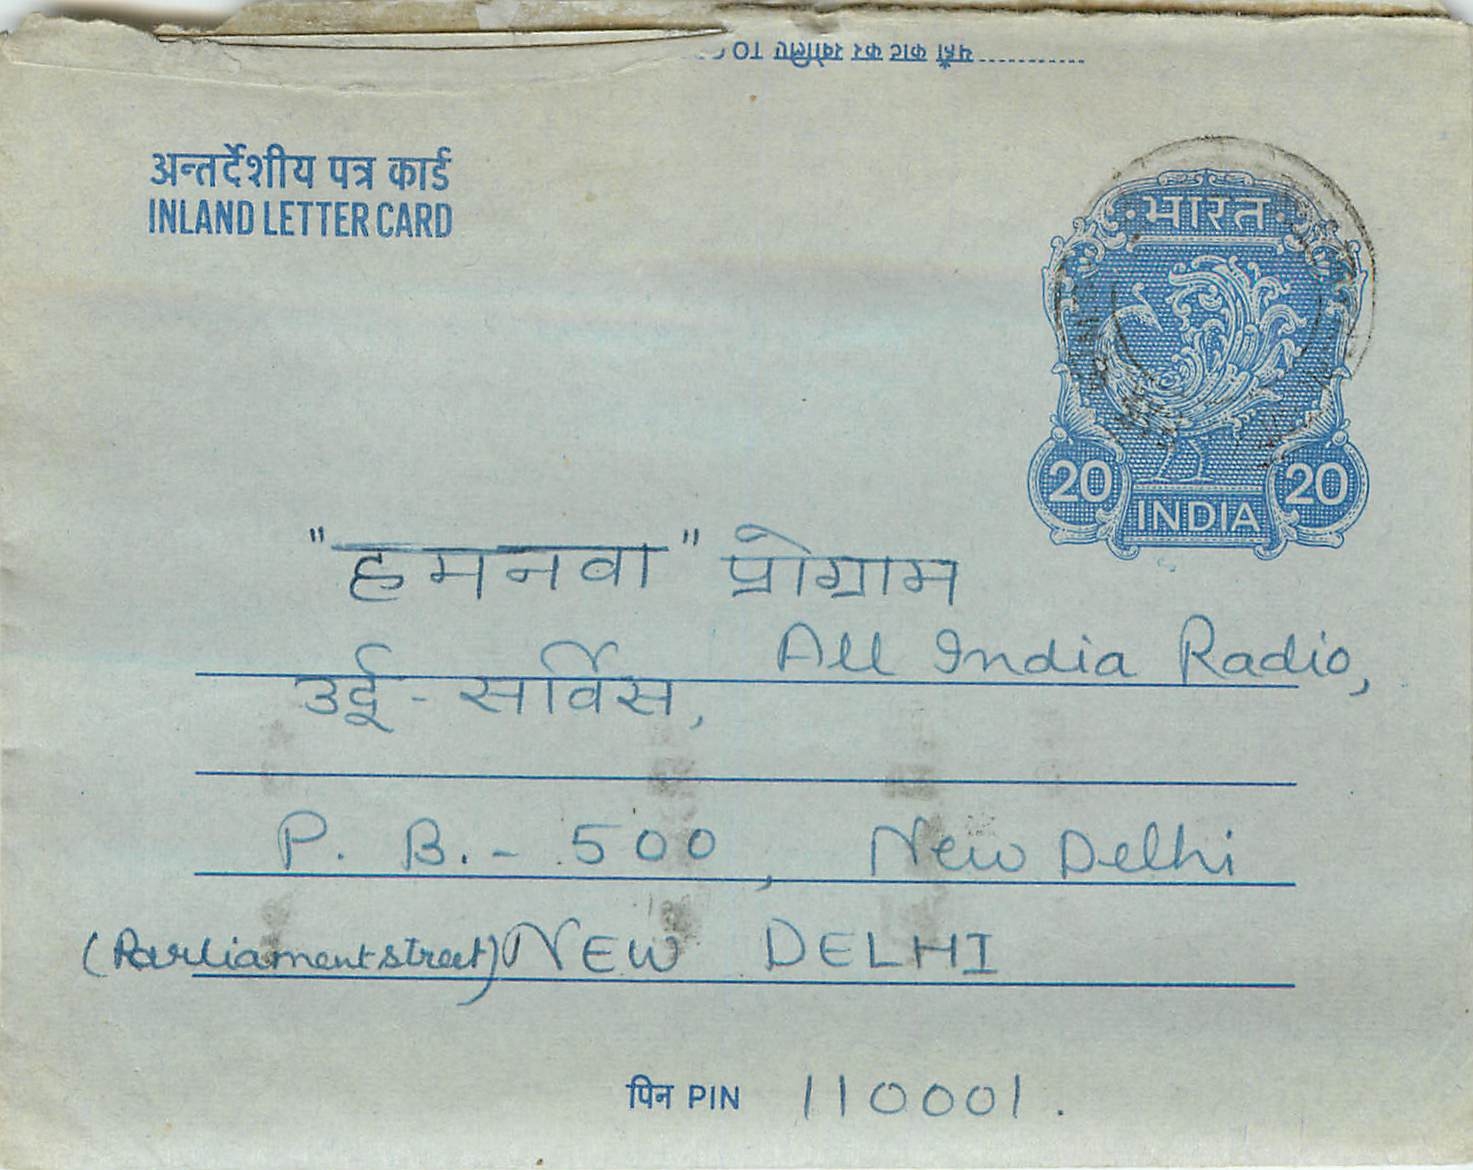 यहाँ काट कर खोलिए TO
अन्तर्देशीय पत्र कार्ड
INLAND LETTER CARD
भारत
20 20
INDIA
"हमनवा" प्रोग्राम
All India Radio,
उर्दू - सर्विस,
P. B. - 500, New Delhi
(Parliament street) NEW DELHI
पिन PIN 110001.